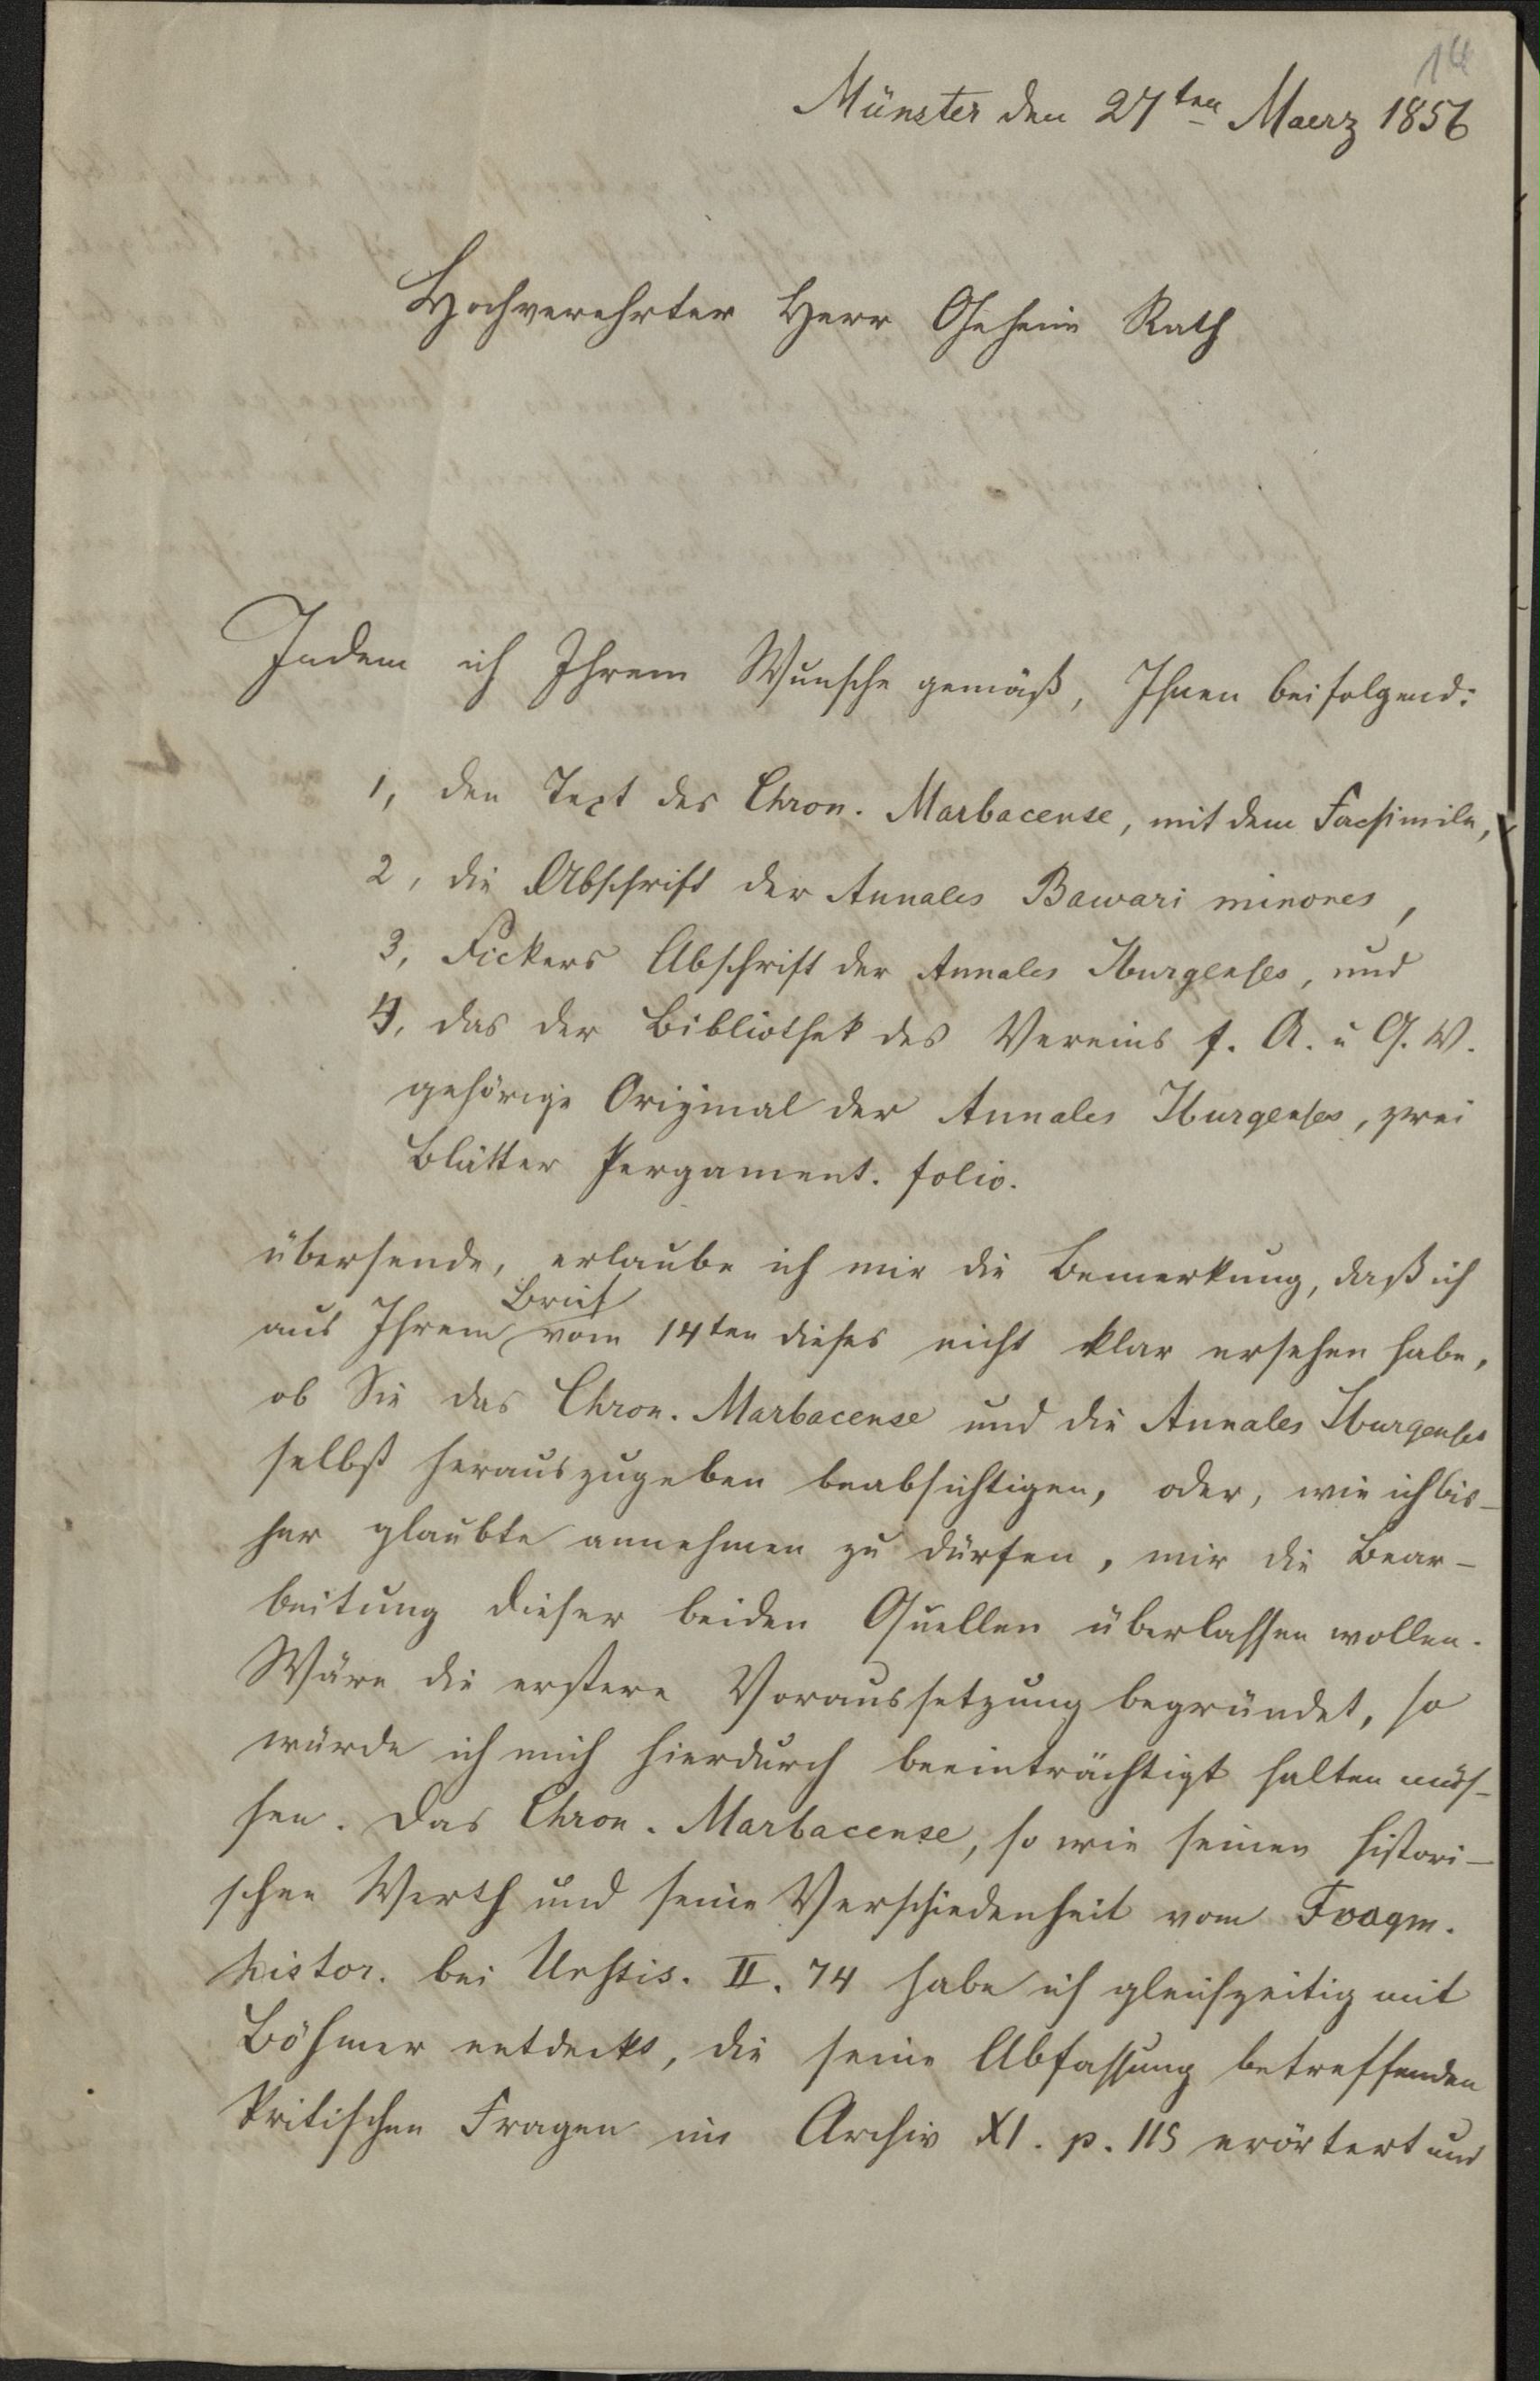 14
Münster den 27ten Maerz 1856
Hochverehrter Herr Geheim Rath
Indem ich Ihrem Wunsche gemäß, Ihnen beifolgend:
1, den Text des Chron. Marbacense, mit dem Facsimile,
2, die Abschrift der Annales Bawari minores,
3, Fickers Abschrift der Annales Iburgenses, und
4, das der Bibliothek des Vereins f. A. u G. W.
gehörige Original der Annales Iburgenses, zwei
Blätter Pergament. folio.
übersende, erlaube ich mir die Bemerkung, daß ich
aus Ihrem Brief vom 14ten dieses nicht klar ersehen habe,
ob Sie das Chron. Marbacense und die Annales Iburgenses
selbst herauszugeben beabsichtigen, oder, wie ich bis-
her glaubte annehmen zu dürfen, mir die Bear-
beitung dieser beiden Quellen überlassen wollen.
Wäre die erstere Voraussetzung begründet, so
würde ich mich hierdurch beeinträchtigt halten müs-
sen. Das Chron. Marbacense, so wie seinen histori-
schen Werth und seine Verschiedenheit vom Fragm.
histor. bei Urstis. II. 74 habe ich gleichzeitig mit
Böhmer entdeckt, die seine Abfassung betreffenden
kritischen Fragen im Archiv XI. p. 115 erörtert und